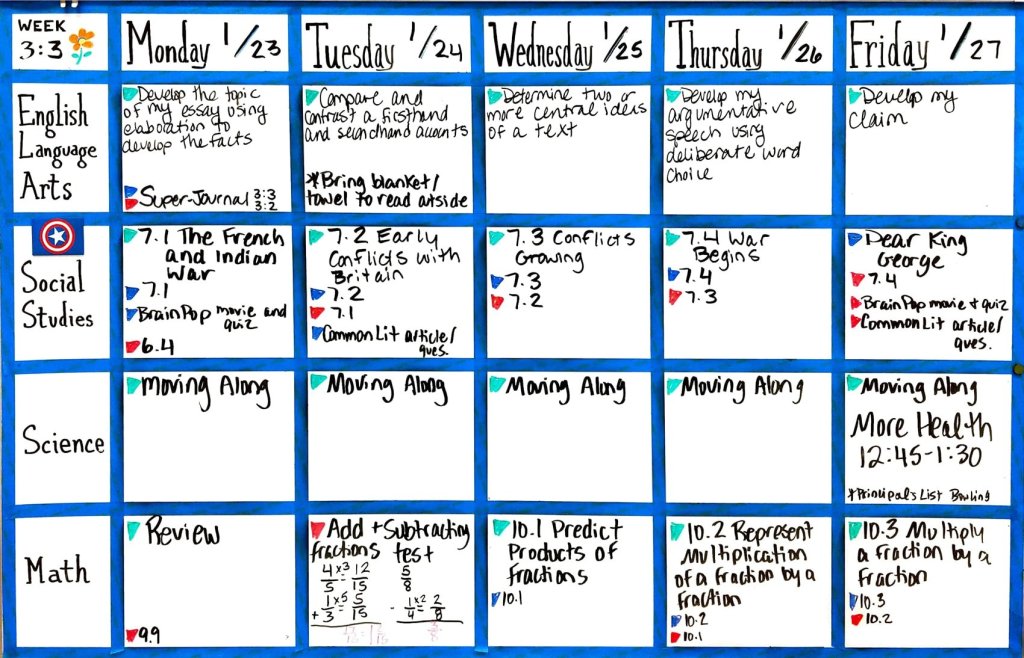 WEEK
3:3
Monday 1/23
Tuesday 1/24
Wednesday 1/25
Thursday 1/26
Friday 1/27
English
Language
Arts
Develop the topic
of my essay using
elaboration to
develop the facts
Super-Journal 3:3
3:2
Compare and
contrast a firsthand
and secondhand accounts
*Bring blanket/
towel to read outside
Determine two or
more central ideas
of a text
Develop my
argumentative
speech using
deliberate word
choice
Develop my
claim
Social
Studies
7.1 The French
and Indian
War
7.1
BrainPop movie and
quiz
6.4
7.2 Early
Conflicts with
Britain
7.2
7.1
CommonLit article/
ques.
7.3 Conflicts
Growing
7.3
7.2
7.4 War
Begins
7.4
7.3
Dear King
George
7.4
BrainPop movie + quiz
CommonLit article/
ques.
Science
Moving Along
Moving Along
Moving Along
Moving Along
Moving Along
More Health
12:45-1:30
*Principal's List Bowling
Math
Review
9.9
Add + Subtracting
fractions test
4/5 x3 = 12/15
+ 1/3 x5 = 5/15
5/8
- 1/4 x2 = 2/8
10.1 Predict
Products of
fractions
10.1
10.2 Represent
Multiplication
of a fraction by a
fraction
10.2
10.1
10.3 Multiply
a fraction by a
fraction
10.3
10.2